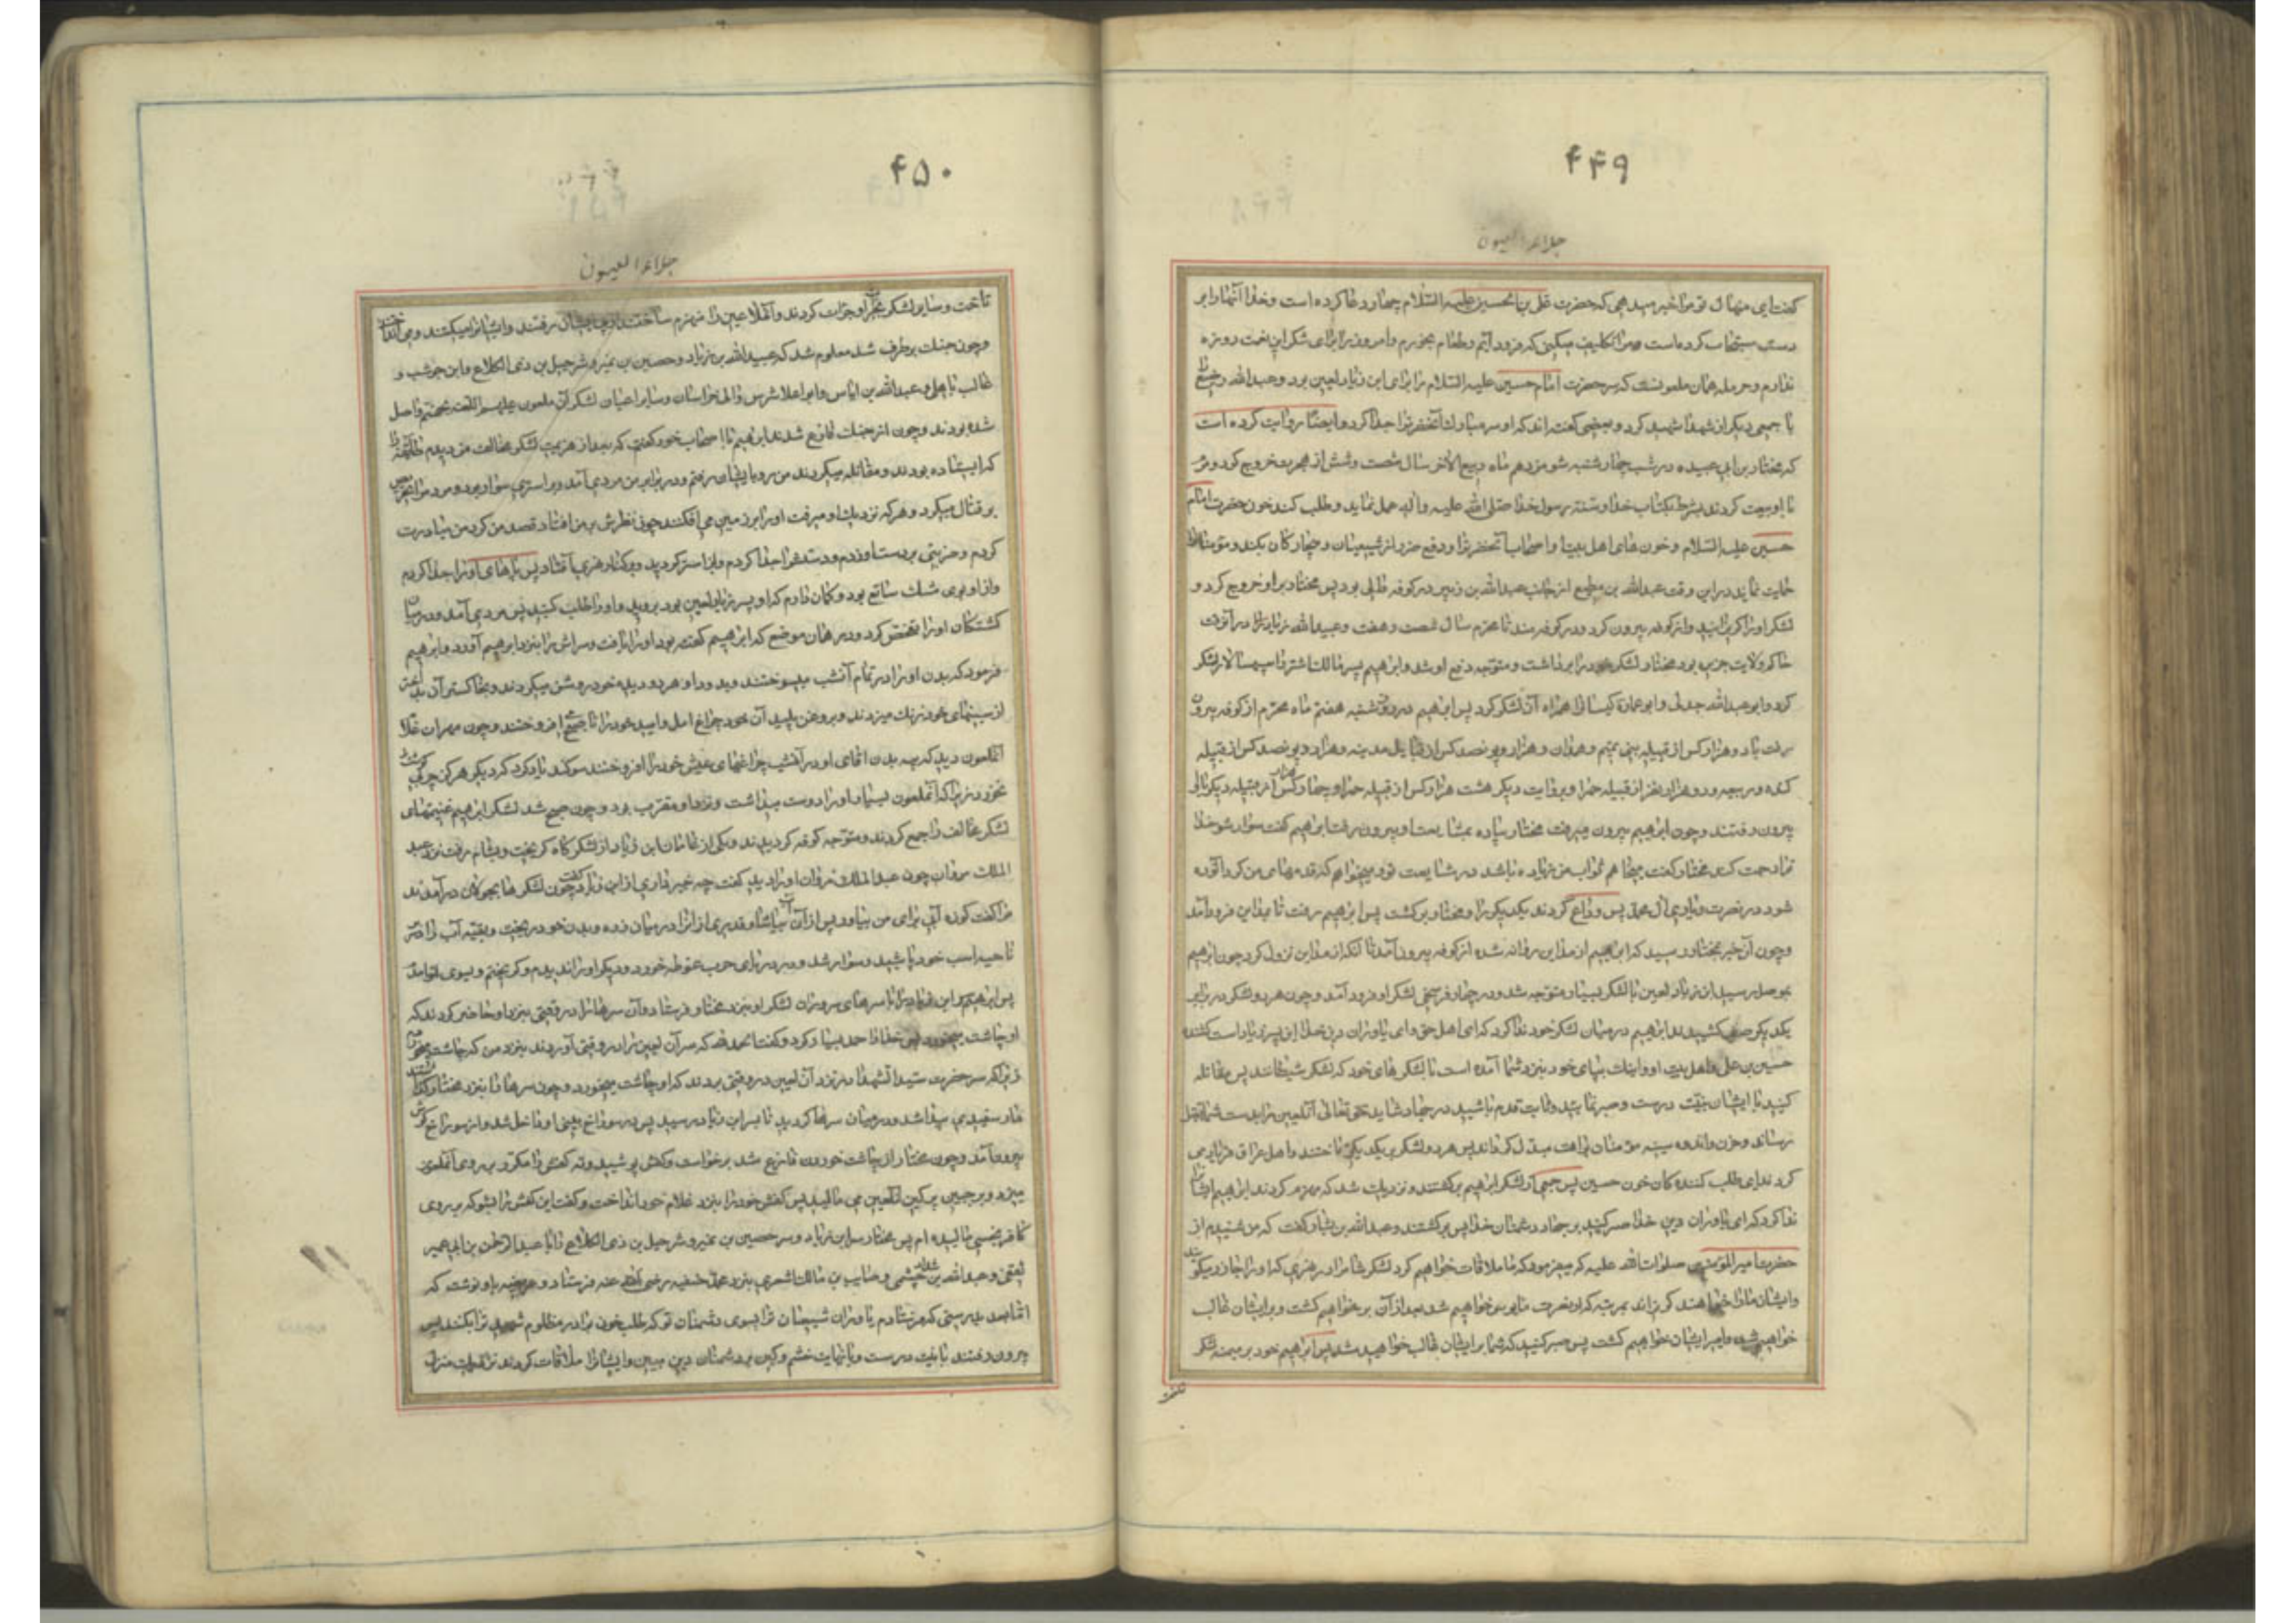 ۴۴۹
جلاء العیون
گفت ای منهال تو مرا خبر میدهی که حضرت علی بن الحسین علیه السلام چهار دعا کرده است و خدا آنها را بر
دست من مستجاب کرده است و مرا تکلیف میکنی که فرود آیم و طعام بخورم و امروز برای شکر این نعمت روزه
ندارم و حرمله همان ملعونست که سر حضرت امام حسین علیه السلام را برای ابن زیاد لعین برد و عبدالله رضیع را
با جمعی دیگر از شهدا شهید کرد و بعضی گفته اند که او سر مبارک آنحضرترا جدا کرد و ایضا روایت کرده است
که مختار بن ابی عبیده در شب چهارشنبه شانزدهم ماه ربیع الاخر سال شصت و شش از هجرت خروج کرد و مردم
با او بیعت کردند بشرط آنکه بکتاب خدا و سنت رسول خدا صلی الله علیه و آله عمل نماید و طلب کند خون حضرت امام
حسین علیه السلام و خون های اهل بیت و اصحاب آنحضرترا و دفع ضرر از شیعیان و بیچارگان بکند و مؤمنانرا
حمایت نماید در این وقت عبدالله بن مطیع از جانب عبدالله بن زبیر در کوفه والی بود پس مختار بر او خروج کرد و
لشکر او را گریزانید و از کوفه بیرون کرد و در کوفه ماند تا محرم سال شصت و هفت و عبیدالله زیاد در آنوقت
حاکم ولایت جزیره بود مختار لشکر خود را برداشت و متوجه دفع او شد و ابرهیم پسر مالک اشتر را سپهسالار لشکر
کرد و ابوعبدالله جدلی و ابوعماره کیسانرا همراه آن لشکر کرد پس ابرهیم در روز شنبه هفتم ماه محرم از کوفه بیرون
رفت با دو هزار کس از قبیله بنی تمیم و همدان و هزار و پانصد کس از قبایل مدینه و هزار و پانصد کس از قبیله
کنده و ربیعه و دو هزار نفر از قبیله حمرا و بروایت دیگر هشت هزار کس از قبیله حمرا و چهار هزار کس از قبیله دیگر با او
بیرون رفتند و چون ابرهیم بیرون میرفت مختار پیاده بمشایعت او بیرون رفت ابراهیم گفت سوار شو خدا
ترا رحمت کند مختار گفت میخواهم ثواب من زیاده باشد در مشایعت تو و میخواهم که قدمهای من گرد آلوده
شود در نصرت و یاری آل محمد پس وداع کردند یکدیگر را و مختار برگشت پس ابرهیم رفت تا مداین فرود آمد
و چون آن خبر بمختار رسید که ابرهیم از مداین روانه شده از کوفه بیرون آمد تا آنکه در مداین نزول کرد چون ابرهیم
بموصل رسید ابن زیاد لعین با لشکر بسیار متوجه شد و در چهار فرسخی لشکر او فرود آمد و چون هر دو لشکر در برابر
یکدیگر صف کشیدند ابرهیم در میان لشکر خود ندا کرد که ای اهل حق و ای یاوران دین خدا این پسر زیاد است کشنده
حسین بن علی و اهل بیت او و اینک بپای خود بنزد شما آمده است با لشکر های خود که لشکر شیطانند پس مقاتله
کنید با ایشان بنیت درست و صبر نمائید و ثابت قدم باشید در جهاد شاید حق تعالی آنلعین را بدست شما بقتل
رساند و حزن و اندوه سینه مؤمنان براحت مبدل گرداند پس هر دو لشکر بر یکدیگر تاختند و اهل عراق فریاد می
کردند ای طلب کنندگان خون حسین پس جمعی از لشکر ابرهیم برگشتند و نزدیک شد که منهزم گردند ابرهیم ایشانرا
ندا کرد که ای یاوران دین خدا صبر کنید بر جهاد دشمنان خدا پس برگشتند و عبدالله بن یسار گفت که من شنیدم از
حضرت امیرالمؤمنین صلوات الله علیه که میفرمود که ما ملاقات خواهیم کرد لشکر شام را در نهری که او را خازر میگویند
و ایشان ما را خواهند گریزاند بمرتبه که از نصرت مایوس خواهیم شد بعد از آن بر خواهیم گشت و بر ایشان غالب
خواهیم شد و امیر ایشان خواهیم کشت پس صبر کنید که شما بر ایشان غالب خواهید شد پس ابرهیم خود بر میمنه لشکر
تاخت
۴۵۰
جلاء العیون
تاخت و سایر لشکر بجرأت او جرأت کردند و آنملاعین را منهزم ساختند از پی ایشان رفتند و ایشانرا میکشتند و می انداختند
و چون جنگ برطرف شد معلوم شد که عبیدالله بن زیاد و حصین بن نمیر و شرحبیل بن ذی الکلاع و ابن حوشب و
غالب باهلی و عبدالله بن ایاس و ابو الاشرس والی خراسان و سایر اعیان لشکر آن ملعون علیهم اللعنه بجهنم واصل
شده بودند و چون از جنگ فارغ شدند ابرهیم با اصحاب خود گفت که بعد از هزیمت لشکر مخالف من دیدم طایفه را
که ایستاده بودند و مقاتله میکردند من رو بایشان رفتم و در برابر من مردی آمد بر استری سوار بود و مردم را تحریص
بر قتال میکرد و هر که نزدیک او میرفت او را بر زمین می افکند چون نظرش بر من افتاد قصد من کرد من مبادرت
کردم و ضربتی بر دست او زدم و دستش را جدا کردم و از استر گردید و بر کنار نهری افتاد پس پاهای او را جدا کردم
و از او بوی مشک ساطع بود و گمان دارم که او پسر زیاد لعین بود بروید و او را طلب کنید پس مردی آمد و در میان
کشتگان او را تفحص کرد و در همان موضع که ابرهیم گفته بود او را یافت و سرش را بنزد ابرهیم آورد و ابرهیم
فرمود که بدن او را در تمام آنشب میسوختند و بدود او هر دو دیده خود روشن میکردند و بخاکستر آن بد اختر
از سینهای خود زنگ میزدند و بروغن پلید آن خود چراغ امل و امید خود را تا صبح افروختند و چون مهران غلام
آنلعون دید که به بدن آقای او در آنشب چراغهای عیش خود را افروختند سوگند یاد کرد که دیگر هرگز چربی گوشت
نخورد زیرا که آنملعون بسیار او را دوست میداشت و نزد او مقرب بود و چون صبح شد لشکر ابرهیم غنیمتهای
لشکر مخالف را جمع کردند و متوجه کوفه گردیدند و یکی از غلامان ابن زیاد از لشکر گاه گریخت و بشام رفت نزد عبد
الملک مروان چون عبدالملک مروان او را دید گفت چه خبر داری از ابن زیاد گفت چون لشکر ها بجولان درآمدند
مرا گفت کوزه آبی برای من بیاور پس از آن آب بیاشامید و قدری از آنرا در میان زره و بدن خود ریخت و بقیه آب را بر
ناصیه اسب خود پاشید و سوار شد و در دریای حرب غوطه خورد و دیگر او را ندیدم و گریختم و بسوی تو آمدم
پس ابرهیم سر ابن زیاد را با سرهای سروران لشکر او بنزد مختار فرستاد و آن سرها را در وقتی بنزد او حاضر کردند که
او چاشت میخورد پس خدا را حمد بسیار کرد و گفت الحمد لله که سر آن لعین را در وقتی آوردند بنزد من که چاشت میخورم
زیرا که سر حضرت سید الشهدا در نزد آن لعین در وقتی بردند که او چاشت میخورد و چون سرها را بنزد مختار گذاشتند
مار سفیدی پیدا شد و در میان سرها گردید تا بسر ابن زیاد رسید پس در سوراخ بینی او داخل شد و از سوراخ گوش
بیرون آمد و چون مختار از چاشت خوردن فارغ شد برخاست و کفش پوشید و ته کفش را مکرر بر روی آنلعین
میزد و بر جبین پر کین آنلعین می مالید پس کفش خود را بنزد غلام خود انداخت و گفت این کفش را بشو که بر روی
کافر نجسی مالیده ام پس مختار سر ابن زیاد و سر حصین بن نمیر و شرحبیل بن ذی الکلاع را با عبدالرحمن بن ابی عمیر
ثقفی و عبدالله بن شداد جشمی و صایب بن مالک اشعری بنزد محمد حنفیه رضی الله عنه فرستاد و عریضه باو نوشت که
اما بعد بدرستی که فرستادم یاوران شیعیان ترا بسوی دشمنان تو که طلب خون برادر مظلوم شهید ترا بکنند پس
بیرون رفتند با نیت درست و با نهایت خشم و کین بر دشمنان دین مبین و ایشانرا ملاقات کردند نزدیک منزل